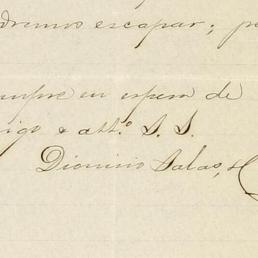 dremos escapar; p
empre en espera de
igo & att.º S. S.
Dionisio Salas,